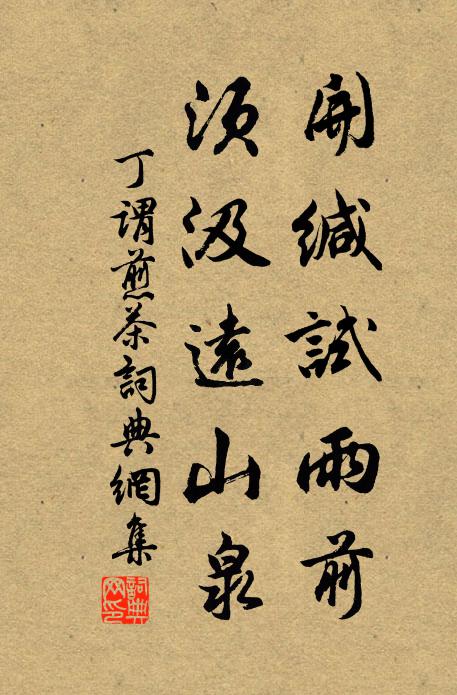 開緘試雨前
須汲遠山泉
丁謂煎茶詞典網集
詞典網印